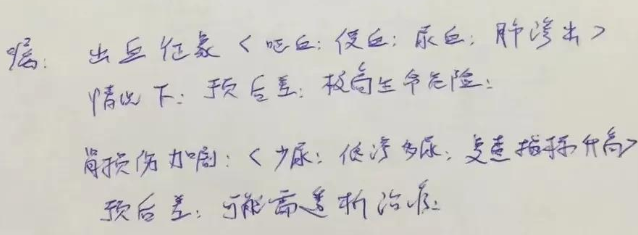 嘱: 出血征象<呕血: 便血: 尿血: 肺渗出>
情况下: 预后差: 极高生命危险:
肾损伤加剧:<少尿: 低渗多尿: 复查指标升高>
预后差: 可能需透析治疗: